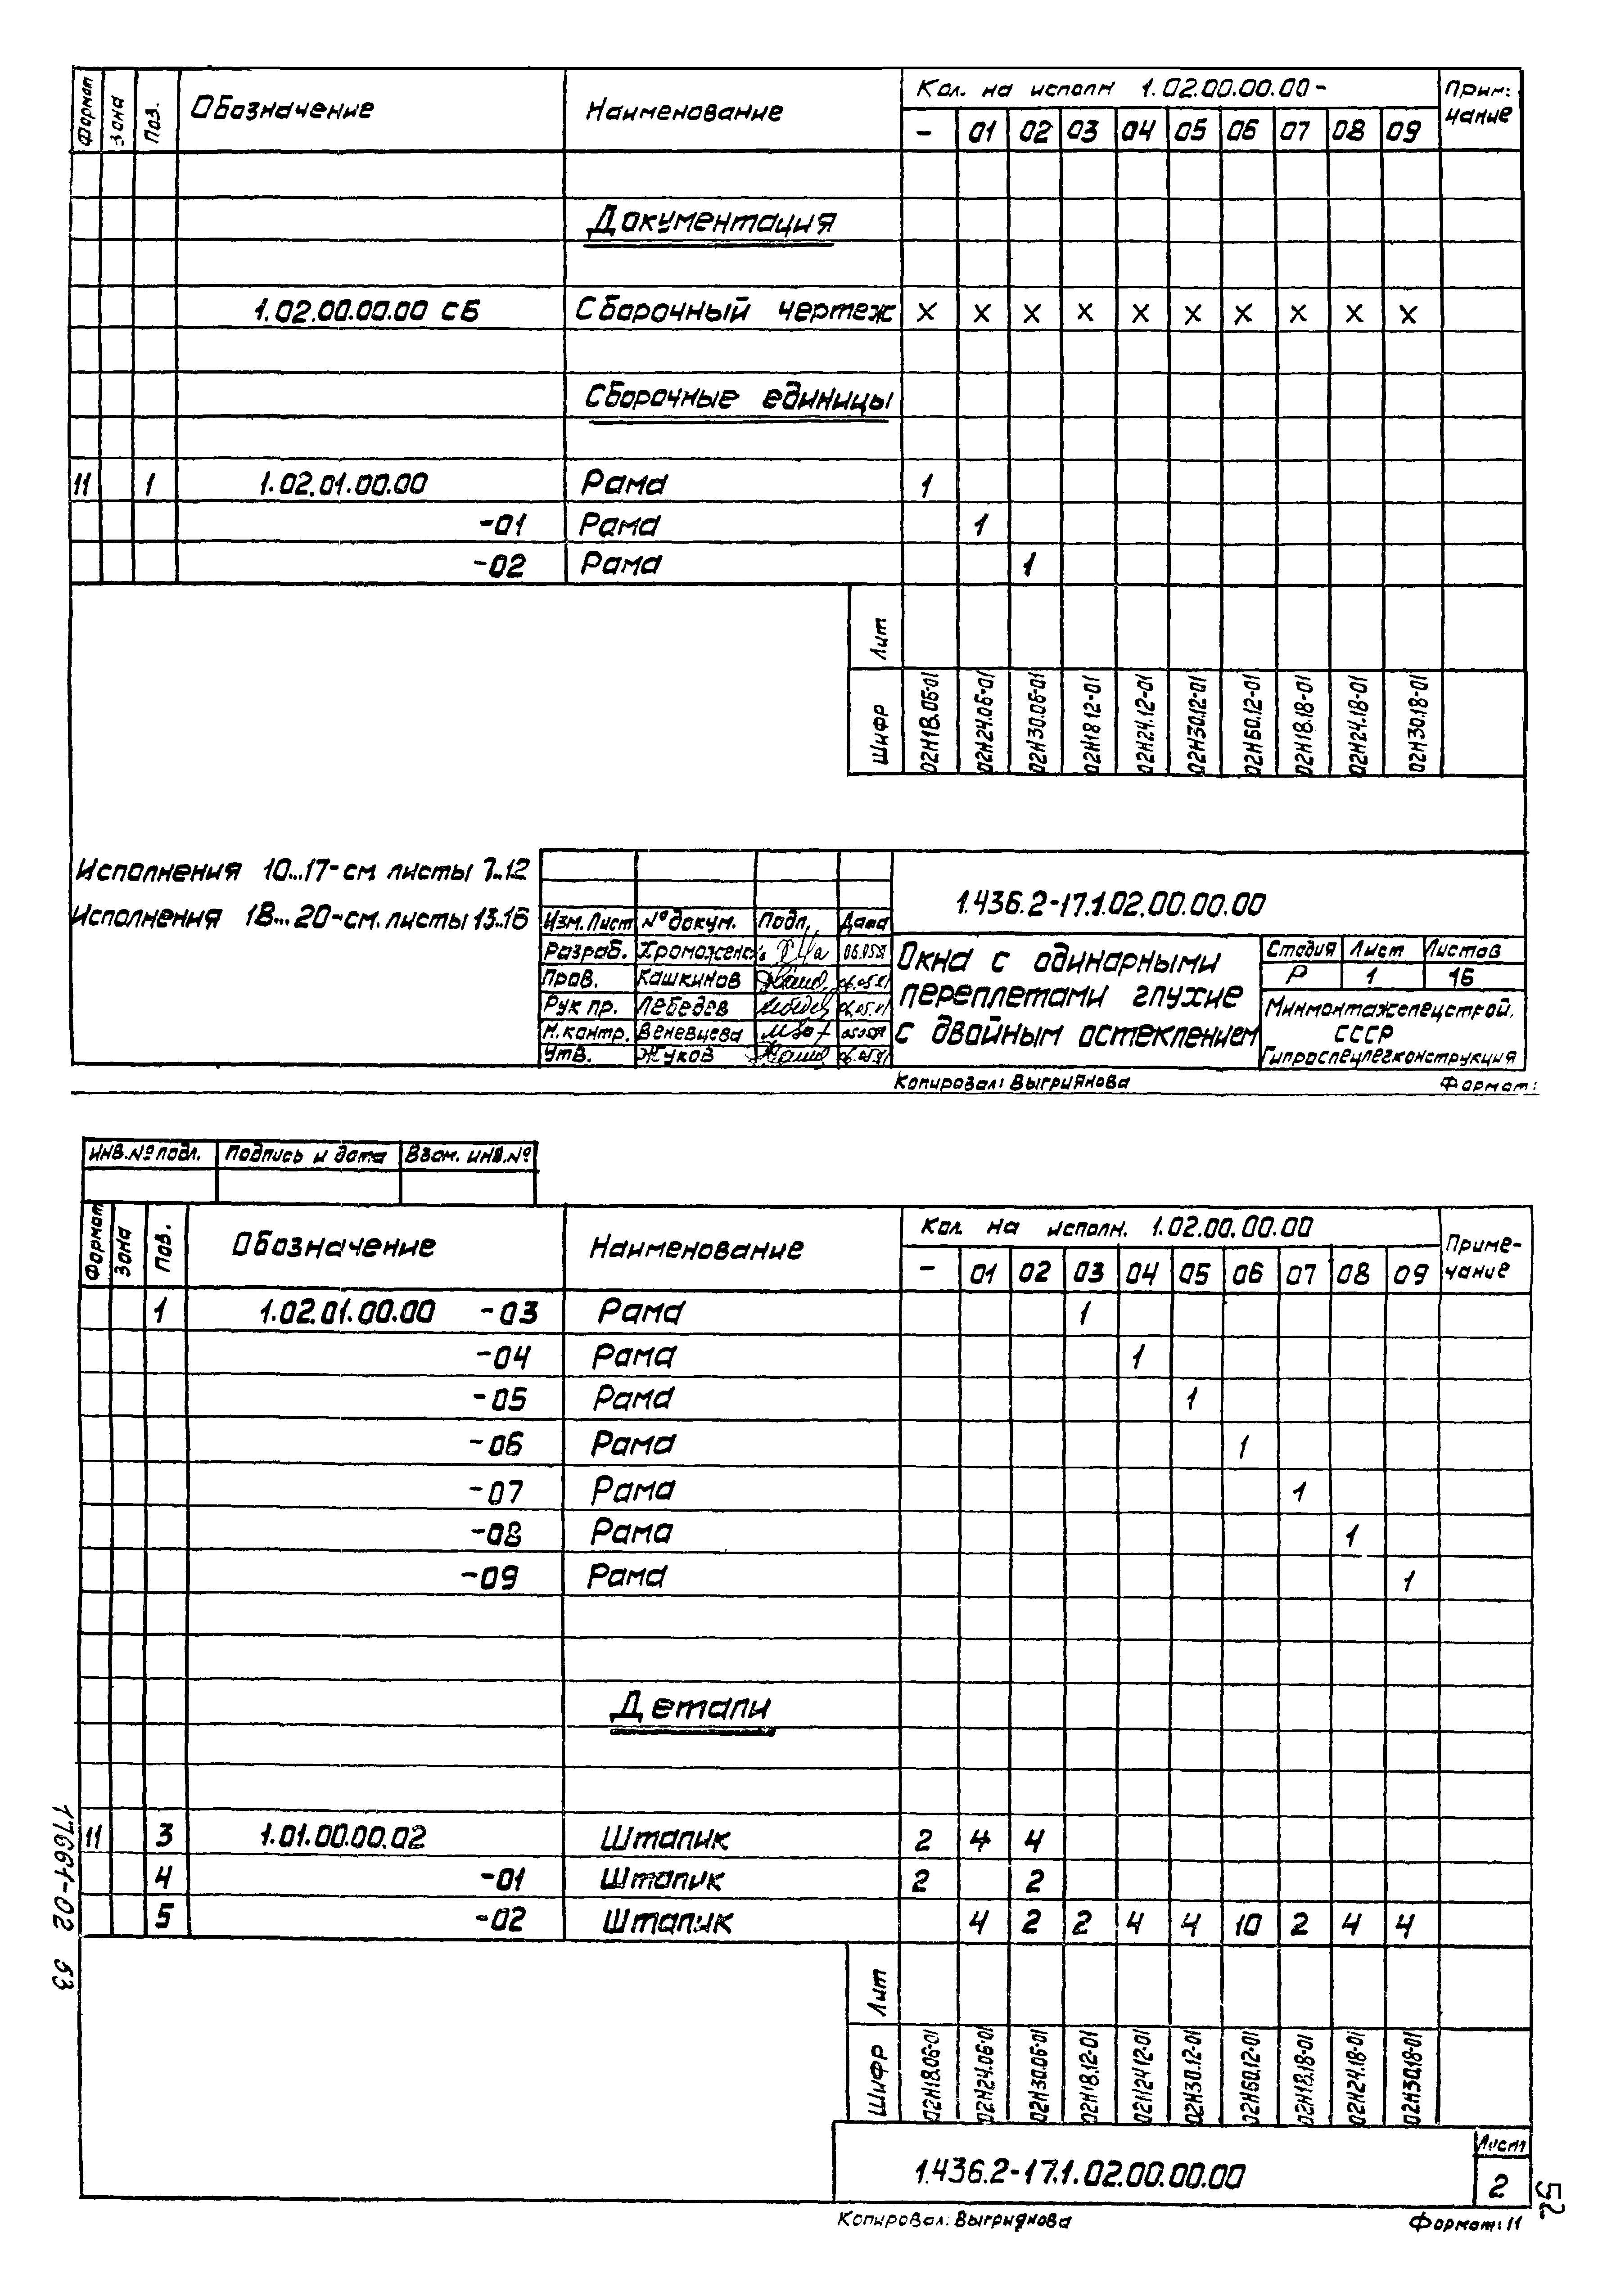 Формат Зона Поз. Обозначение Наименование Кол. на исполн 1.02.00.00.00- Прим: чание
- 01 02 03 04 05 06 07 08 09
Документация
1.02.00.00.00 СБ Сборочный чертеж х х х х х х х х х х
Сборочные единицы
11 1 1.02.01.00.00 Рама 1
-01 Рама 1
-02 Рама 1
Лит
Шифр 02Н18.06-01 02Н24.06-01 02Н30.06-01 02Н18 12-01 02Н24.12-01 02Н30.12-01 02Н60.12-01 02Н18.18-01 02Н24.18-01 02Н30.18-01
Исполнения 10...17-см листы 7..12
Исполнения 18...20-см. листы 13..16
1.436.2-17.1.02.00.00.00
Изм. Лист № докум. Подп. Дата
Разраб.
Пров. Кашкинов
Рук пр. Лебедев
Н.контр. Веневцева
Утв. Жуков
Окна с одинарными
переплетами глухие
с двойным остеклением
Стадия Лист Листов
Р 1 16
Минмонтажспецстрой
СССР
Гипроспецлегконструкция
Копировал: Выгриянова Формат:
Инв.№ подл. Подпись и дата Взам. инв.№
Формат Зона Поз. Обозначение Наименование Кол. на исполн. 1.02.00.00.00 Приме-
чание
- 01 02 03 04 05 06 07 08 09
1 1.02.01.00.00 -03 Рама 1
-04 Рама 1
-05 Рама 1
-06 Рама 1
-07 Рама 1
-08 Рама 1
-09 Рама 1
Детали
11 3 1.01.00.00.02 Штапик 2 4 4
4 -01 Штапик 2 2
5 -02 Штапик 4 2 2 4 4 10 2 4 4
Лит
Шифр 02Н18.06-01 02Н24.06-01 02Н30.06-01 02Н18.12-01 02Н24 12-01 02Н30.12-01 02Н60.12-01 02Н18.18-01 02Н24.18-01 02Н30.18-01
1.436.2-17.1.02.00.00.00
Лист
2
Копировал: Выгриянова Формат: 11
17661-02 53
52